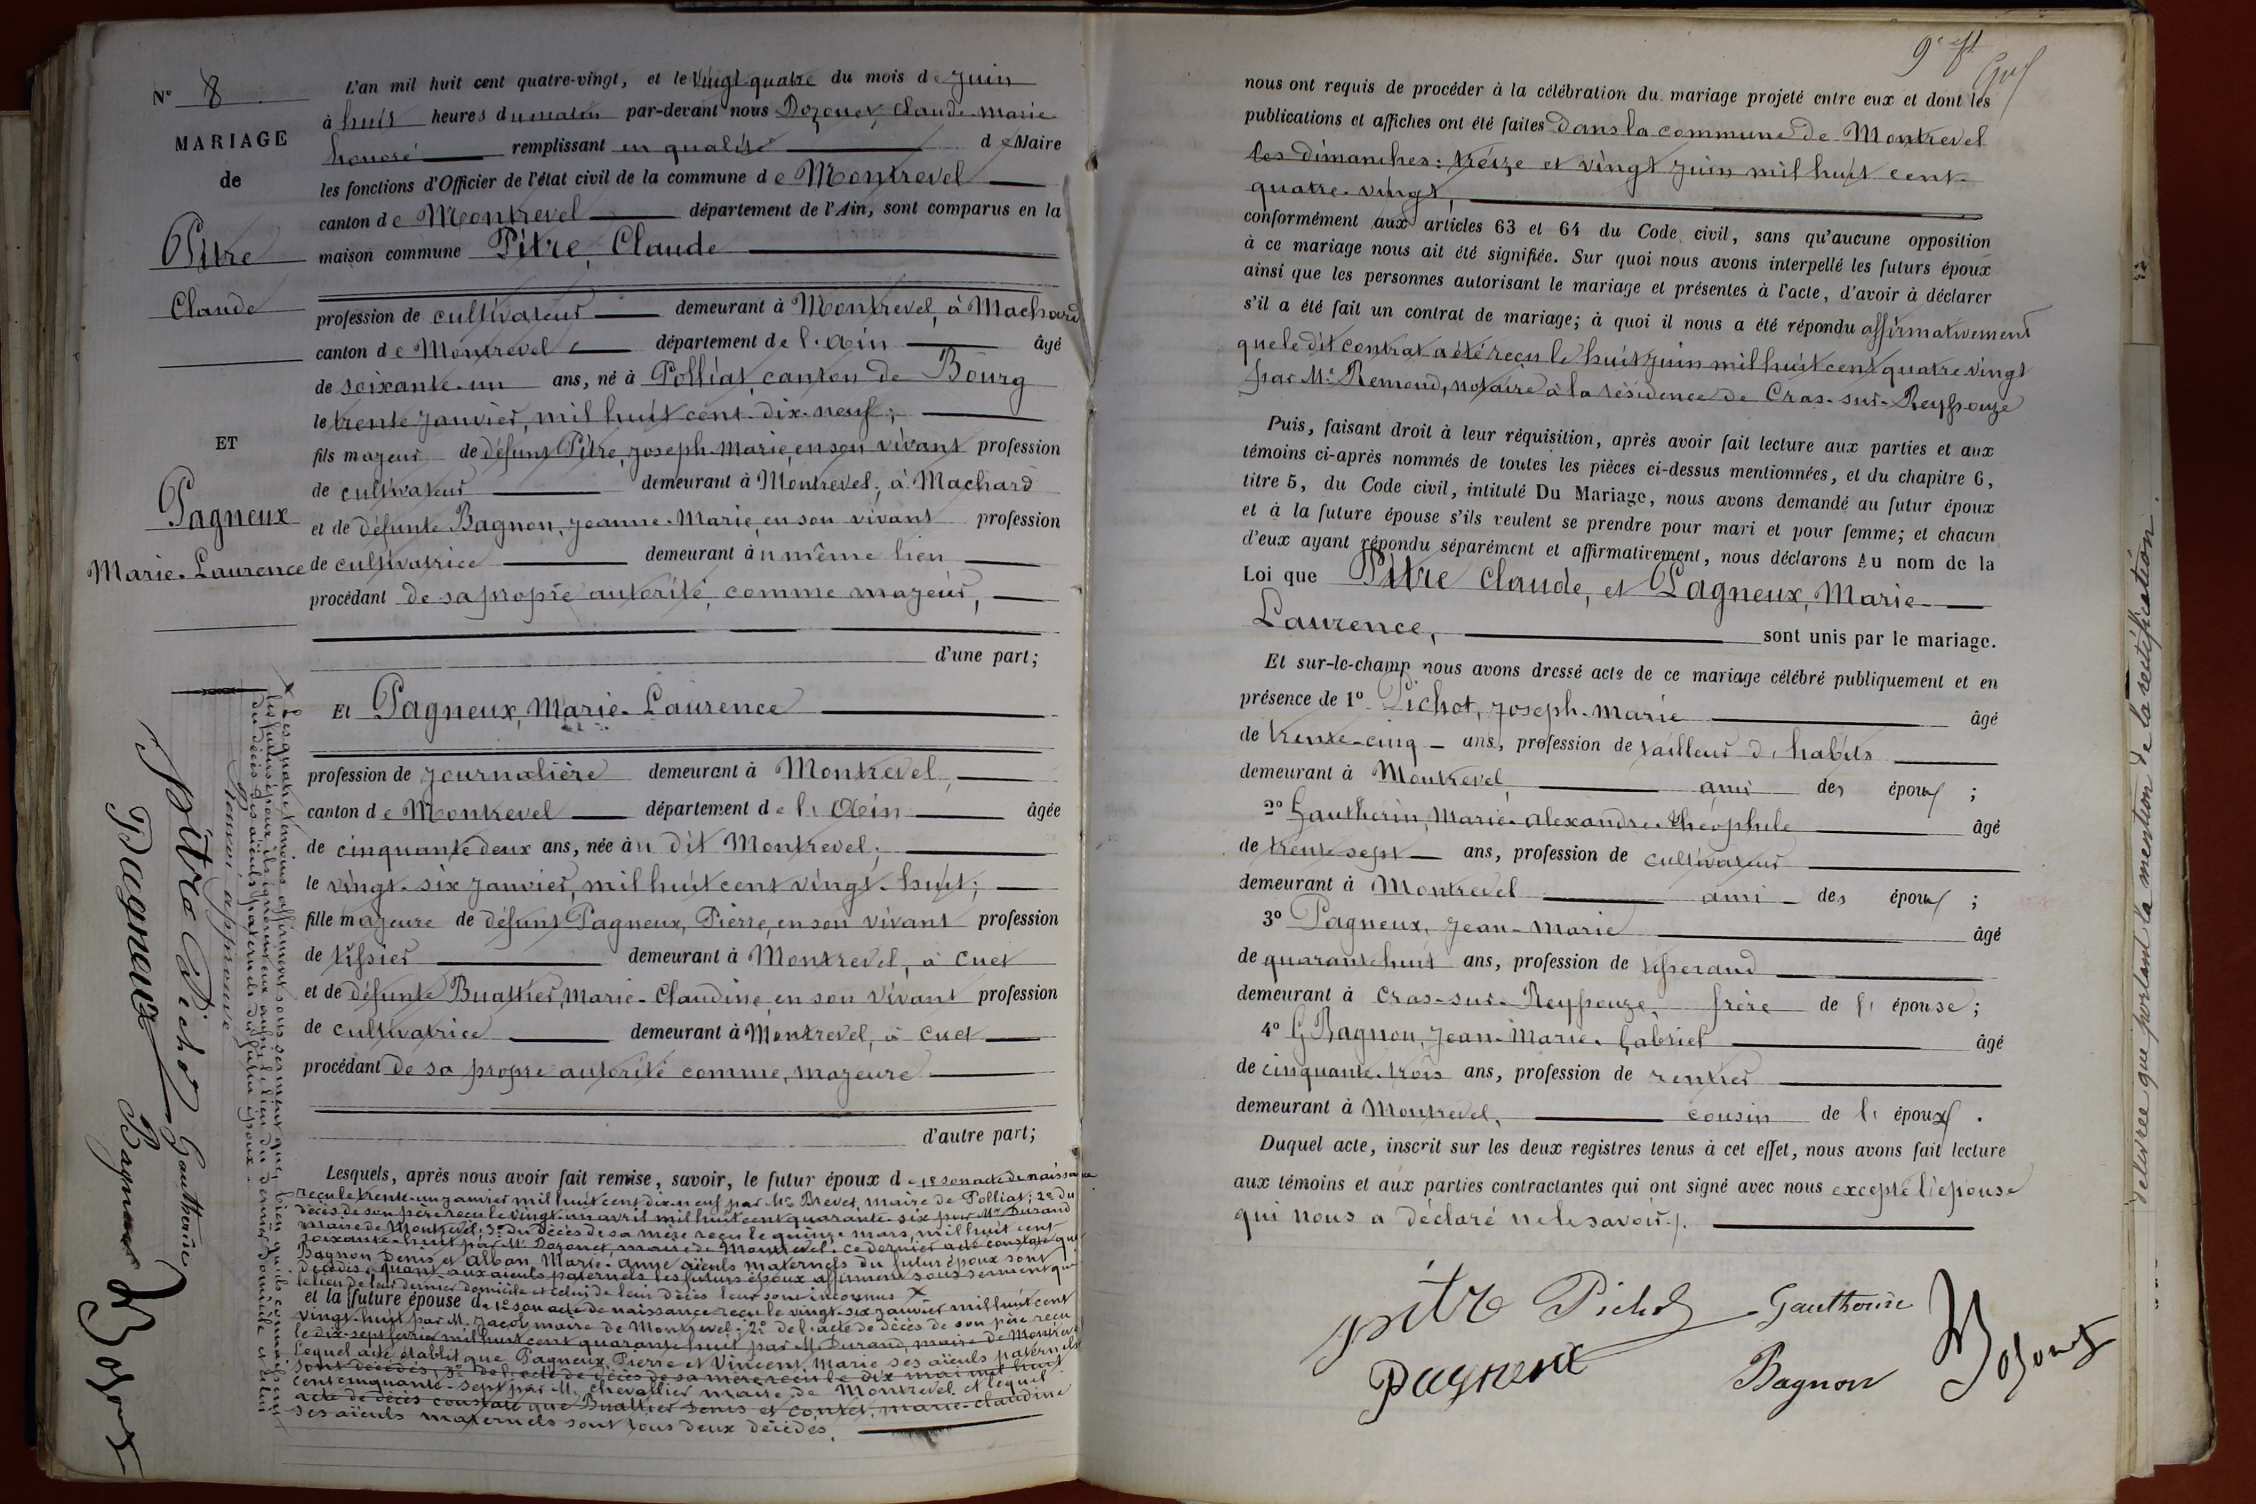 N° 8
MARIAGE
de
Pitre
Claude
ET
Pagneux
Marie-Laurence
L'an mil huit cent quatre-vingt, et le vingt-quatre du mois de juin
à huit heures du matin par-devant nous Dozouet, Claude-Marie
honoré remplissant en qualité de Maire
les fonctions d'Officier de l'état civil de la commune de Montrevel
canton de Montrevel département de l'Ain, sont comparus en la
maison commune Pitre, Claude
profession de cultivateur demeurant à Montrevel, à Machard
canton de Montrevel département de l'Ain âgé
de soixante-un ans, né à Polliat, canton de Bourg
le trente janvier, mil huit cent dix-neuf;
fils majeur de défunt Pitre, Joseph-Marie, en son vivant profession
de cultivateur demeurant à Montrevel, à Machard
et de défunte Bagnon, Jeanne-Marie, en son vivant profession
de cultivatrice demeurant au même lieu
procédant de sa propre autorité, comme majeur,
d'une part;
Et Pagneux, Marie-Laurence
profession de journalière demeurant à Montrevel,
canton de Montrevel département de l'Ain âgée
de cinquante deux ans, née au dit Montrevel;
le vingt-six janvier, mil huit cent vingt-huit;
fille majeure de défunt Pagneux, Pierre, en son vivant profession
de tissier demeurant à Montrevel, à Cuet
et de défunte Buathier, Marie-Claudine, en son vivant profession
de cultivatrice demeurant à Montrevel, à Cuet
procédant de sa propre autorité comme, majeure
d'autre part;
Lesquels, après nous avoir fait remise, savoir, le futur époux de 1° son acte de naissance
reçu le trente-un janvier mil huit cent dix-neuf par Mr Brevet, maire de Polliat; 2° du
décès de son père reçu le vingt-un avril mil huit cent quarante-six par Mr Durand
maire de Montrevel; 3° du décès de sa mère reçu le quinze mars, mil huit cent
soixante-huit par Mr Dozouet, maire de Montrevel. Ce dernier acte constate que
Bagnon Denis et Alban, Marie-Anne aïeuls maternels du futur époux sont
décédés. Quant aux aïeuls paternels les futurs époux affirment sous serment que
le lieu de leur dernier domicile et celui de leur décès leur sont inconnus X
et la future épouse de 1° son acte de naissance reçu le vingt-six janvier mil huit cent
vingt-huit par M. Jacob maire de Montrevel; 2° de l'acte de décès de son père reçu
le dix-sept février mil huit cent quarante huit par M. Durand, maire de Montrevel
lequel acte établit que Pagneux, Pierre et Vincent, Marie ses aïeuls paternels
sont décédés; 3° de l'acte de décès de sa mère reçu le dix mai mil huit
cent cinquante-sept par M. Chevallier maire de Montrevel et lequel
acte de décès constate que Buathier Denis et Contet, Marie-Claudine
ses aïeuls maternels sont tous deux décédés.
X Les quatre témoins affirment sous serment que, bien qu'ils connaissent
les futurs époux, ils ignorent eux aussi le lieu du dernier domicile et celui
du décès des aïeuls paternels du futur époux.
Renvoi approuvé
Pitre Pichod Gautherin
Pagneux Bagnon Dozouet
nous ont requis de procéder à la célébration du mariage projeté entre eux et dont les
publications et affiches ont été faites dans la commune de Montrevel
les dimanches: treize et vingt juin mil huit cent-
quatre-vingt,
conformément aux articles 63 et 64 du Code civil, sans qu'aucune opposition
à ce mariage nous ait été signifiée. Sur quoi nous avons interpellé les futurs époux
ainsi que les personnes autorisant le mariage et présentes à l'acte, d'avoir à déclarer
s'il a été fait un contrat de mariage; à quoi il nous a été répondu affirmativement
que le dit contrat a été reçu le huit juin mil huit cent quatre vingt
par Me Remond, notaire à la résidence de Cras-sur-Reyssouze
Puis, faisant droit à leur réquisition, après avoir fait lecture aux parties et aux
témoins ci-après nommés de toutes les pièces ci-dessus mentionnées, et du chapitre 6,
titre 5, du Code civil, intitulé Du Mariage, nous avons demandé au futur époux
et à la future épouse s'ils veulent se prendre pour mari et pour femme; et chacun
d'eux ayant répondu séparément et affirmativement, nous déclarons Au nom de la
Loi que Pitre Claude, et Pagneux, Marie-
Laurence, sont unis par le mariage.
Et sur-le-champ nous avons dressé acte de ce mariage célébré publiquement et en
présence de 1° Pichot, Joseph-Marie âgé
de trente-cinq ans, profession de tailleur d'habits
demeurant à Montrevel, ami des époux;
2° Gautherin, Marie-Alexandre-Théophile âgé
de trente sept ans, profession de cultivateur
demeurant à Montrevel ami des époux;
3° Pagneux, Jean-Marie âgé
de quarante huit ans, profession de tisserand
demeurant à Cras-sur-Reyssouze, frère de l'épouse;
4° Bagnon, Jean-Marie-Gabriel âgé
de cinquante-trois ans, profession de rentier
demeurant à Montrevel, cousin de l'époux.
Duquel acte, inscrit sur les deux registres tenus à cet effet, nous avons fait lecture
aux témoins et aux parties contractantes qui ont signé avec nous excepté l'épouse
qui nous a déclaré ne le savoir.
pitre Pichod Gautherin Dozouet
Pagneux Bagnon
délivrée que portant la mention de la rectification